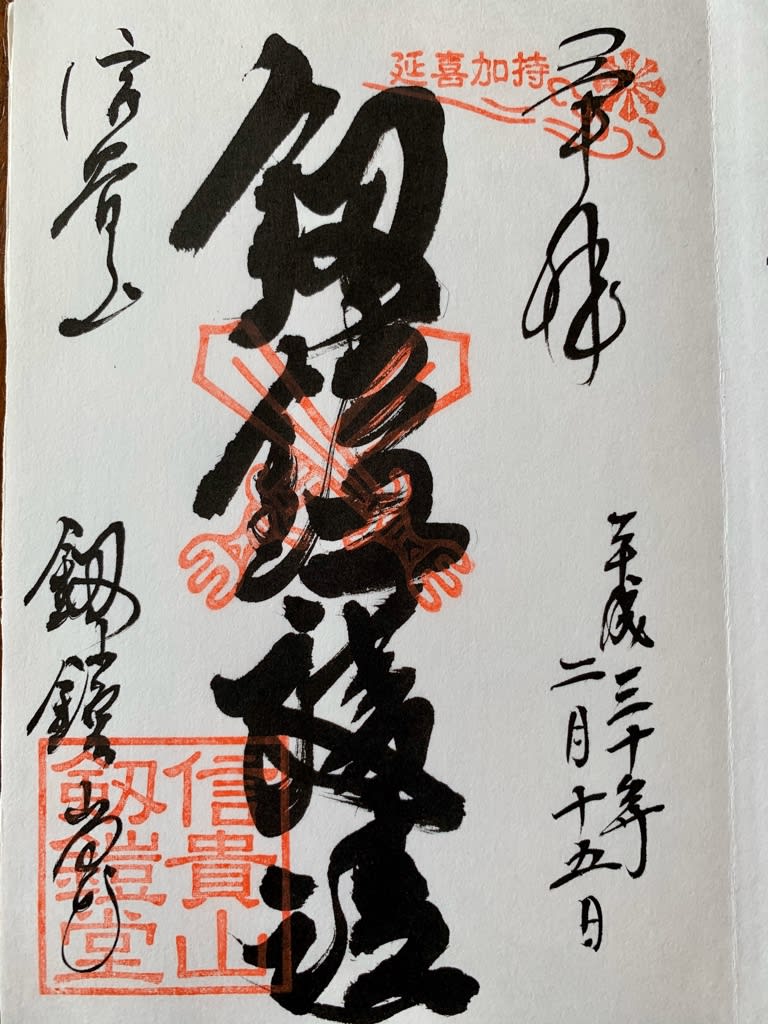 延喜加持
奉拝
平成三十年
二月十五日
釼鎧護法
信貴山
釼鎧堂
信貴山
釼鎧堂